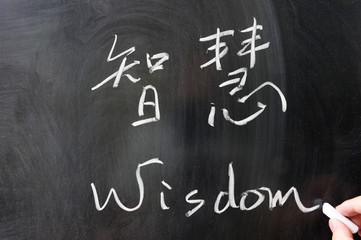 智慧
Wisdom